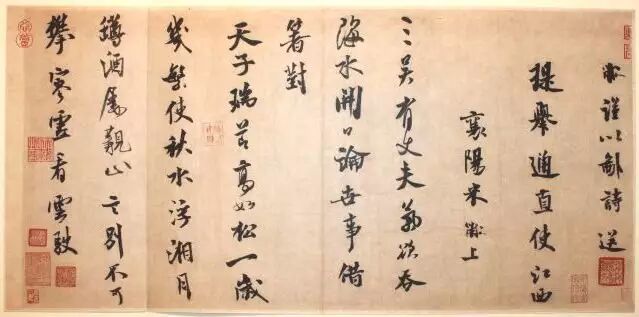 黻謹以鄙詩送
提舉通直使江西
襄陽米黻上
三吳有丈夫氣欲吞
海水開口論世事借
箸對
天子瑞節高如松一歲
幾繁使秋水浮湘月
罇酒屬山言別不可
攀寒看雲駛